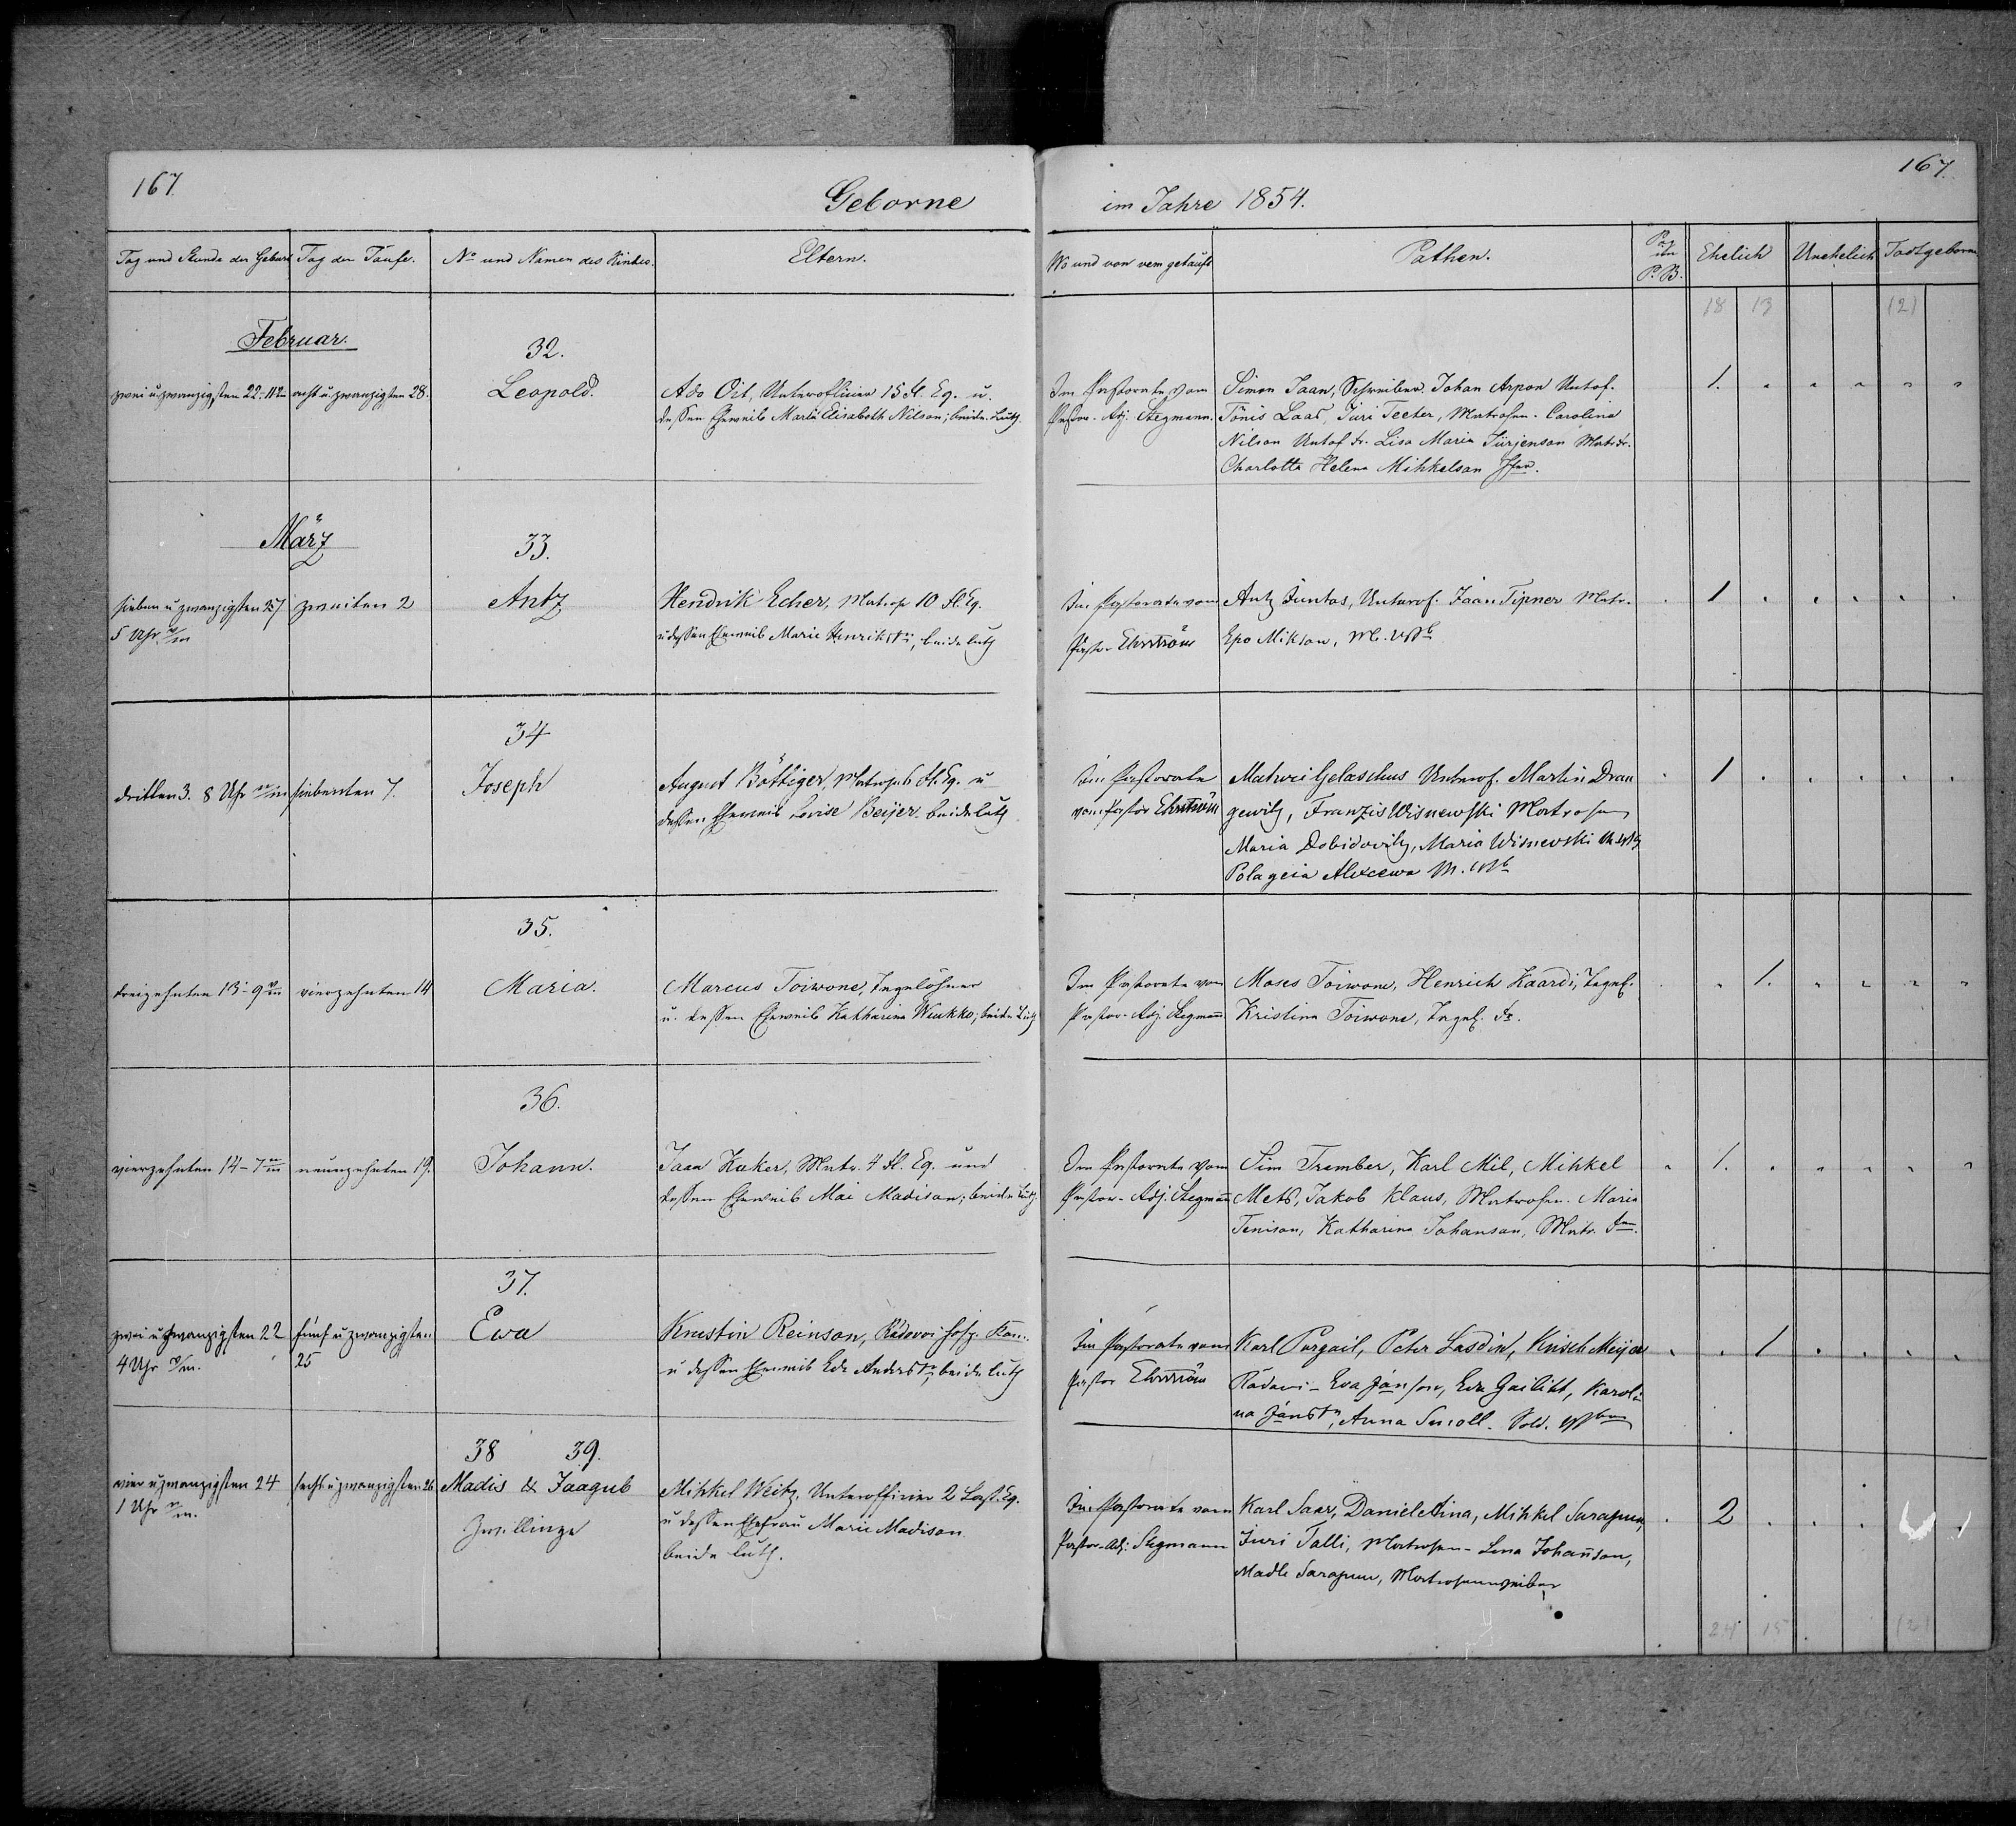 167.
167.
Geborne
im Jahre 1854.
Tag und Stunde der Geburt
Tag der Taufe.
No und Namen des Kindes.
Eltern.
Wo und von wem getauft
Pathen.
Pag im P. B.
Ehelich
Unehelich
Todtgeborne
18 13 (2)
Februar.
32.
zwei u. zwanzigsten 22.
acht u. zwanzigsten 28.
Leopold
Ado Oit, Unterofficier 15 Fl. Eq. u.
dessen Eheweib Marli Elisabeth Nilson; beide Luth.
Im Pastorate vom
Pastor-Adj. Stegmann.
Simon Jaan, Schreiber. Johan Arpon Untof.
Tönis Laas, Jüri Teeter, Matrosen. Carolina
Nilson Untof. Lisa Maria Jürjenson Matr.
Charlotta Helena Mihkelson
1.
März
33.
sieben u zwanzigsten 27
5 Uhr
zweiten 2
Antz
Hendrik Echer, Matrose 10 Fl. Eq.
u dessen Eheweib Marie Henrikstr, beide luth
Im Pastorate vom
Pastor Ehrström
Antz Juntas, Unterof. Jaan Tipner Matr.
Epo Mikson,
1
34
dritten 3. 8 Uhr
siebenten 7.
Joseph
August Böttiger, Matrose 6 Fl. Eq. u
dessen Eheweib Lovise Beijer. beide luth
Im Pastorate
vom Pastor Ehrström
Matwei Gelaschus Unterof. Martin Dran
gewitz, Franzis Wisnewski Matrosen
Maria Dobidovitz, Maria Wisnevski
Polageia Alexeewa
1
35.
dreizehnten 13 - 9
vierzehnten 14
Maria.
Marcus Toiwone, Tagelöhner
u. dessen Eheweib Katharina Wiukko; beide Luth
Im Pastorate vom
Pastor-Adj. Stegmann
Moses Toiwone, Henrich Kaardi, Tagel.
Kristina Toiwone, Tagel. Fr.
1.
36.
vierzehnten 14 - 7
neunzehnten 19.
Johann.
Jaan Kuker, Matr. 4 Fl. Eq. und
dessen Eheweib Mai Madison; beide Luth
Im Pastorate vom
Pastor-Adj. Stegmann
Siim Tramber, Karl Mil, Mihkel
Mets, Jakob Klaus, Matrosen. Maria
Tenison, Katharina Johanson, Matr.
1.
37.
zwei u zwanzigsten 22
4 Uhr
fünf u zwanzigsten
25
Ewa
Krustin Reinson,
u dessen Eheweib Ede Anderstr, beide luth
Im Pastorate vom
Pastor Ehrström
Karl Purgail, Peter Lasdin, Krisch Meijer
Rädawi - Eva Janson, Eva Gailitt, Karoli
na Janstr, Anna Smoll. Sold.
1
38 39.
vier u zwanzigsten 24
1 Uhr
sechs u zwanzigsten 26
Madis & Jaagub
Zwillinge
Mihkel Weitz, Unterofficier 2 Last. Eq.
u dessen Ehefrau Marie Madison
beide luth.
Im Pastorate vom
Pastor-Adj. Stegmann
Karl Saar, Daniel Aina, Mihkel Sarapuu,
Juri Talli, Matrosen - Lena Johanson,
Madle Sarapuu, Matrosenweiber
2
24 15 (2)